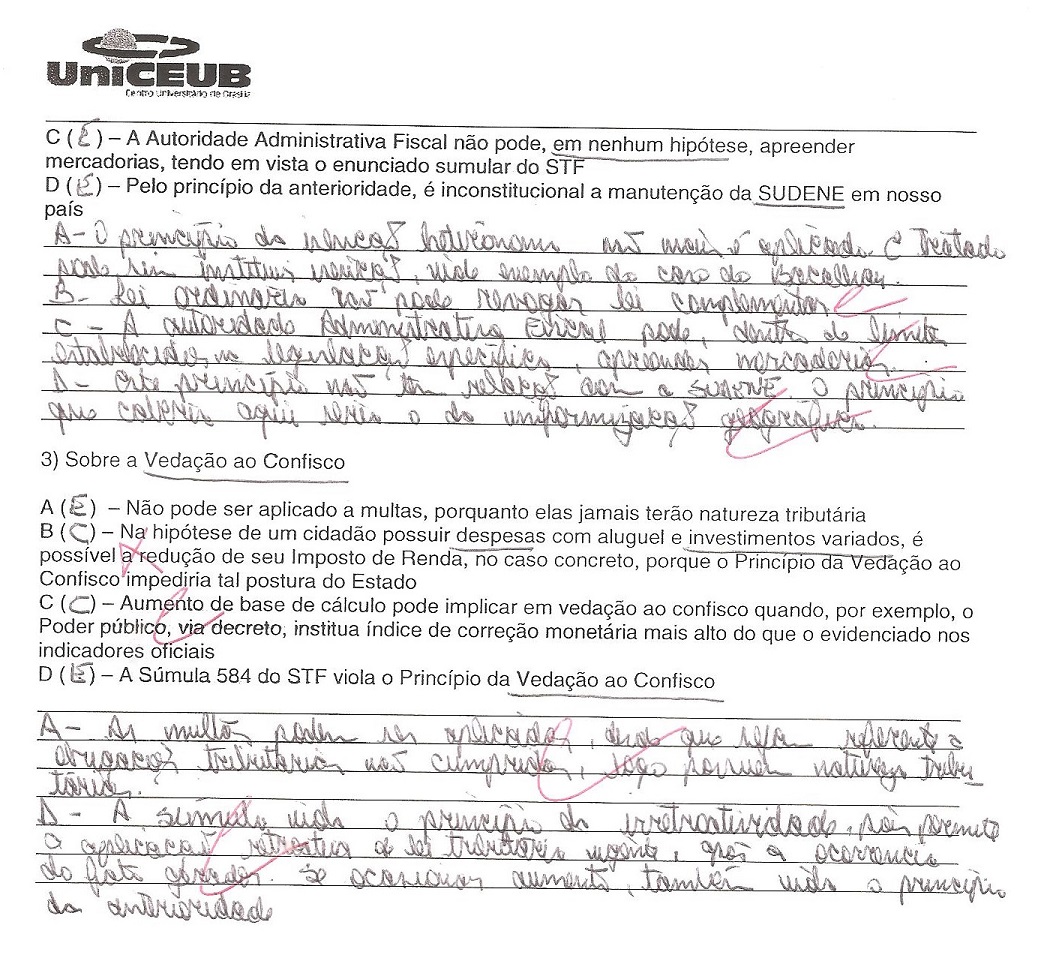 UniCEUB
Centro Universitário de Brasília
C (E) – A Autoridade Administrativa Fiscal não pode, em nenhum hipótese, apreender
mercadorias, tendo em vista o enunciado sumular do STF
D (E) – Pelo princípio da anterioridade, é inconstitucional a manutenção da SUDENE em nosso
país
A - O princípio da isenção heterônoma não mais é aplicado. O Tratado
pode sim instituir isenção, vide exemplo do caso do Bacalhau.
B - Lei ordinária não pode revogar lei complementar
C - A autoridade Administrativa Fiscal pode, dentro do limite
estabelecido na legislação específica, apreender mercadorias.
D - Este princípio não tem relação com a SUDENE. O princípio
que caberia aqui seria o da uniformização geográfica.
3) Sobre a Vedação ao Confisco
A (E) – Não pode ser aplicado a multas, porquanto elas jamais terão natureza tributária
B (C) – Na hipótese de um cidadão possuir despesas com aluguel e investimentos variados, é
possível a redução de seu Imposto de Renda, no caso concreto, porque o Princípio da Vedação ao
Confisco impediria tal postura do Estado
C (C) – Aumento de base de cálculo pode implicar em vedação ao confisco quando, por exemplo, o
Poder público, via decreto, institua índice de correção monetária mais alto do que o evidenciado nos
indicadores oficiais
D (E) – A Súmula 584 do STF viola o Princípio da Vedação ao Confisco
A - As multas podem ser aplicadas, desde que sejam referente a
obrigações tributárias não cumpridas, logo possuem natureza tribu-
tária.
D - A súmula viola o princípio da irretroatividade, pois permite
a aplicação retroativa de lei tributária vigente, após a ocorrência
do fato gerador. Se ocasionar aumento, também viola o princípio
da anterioridade